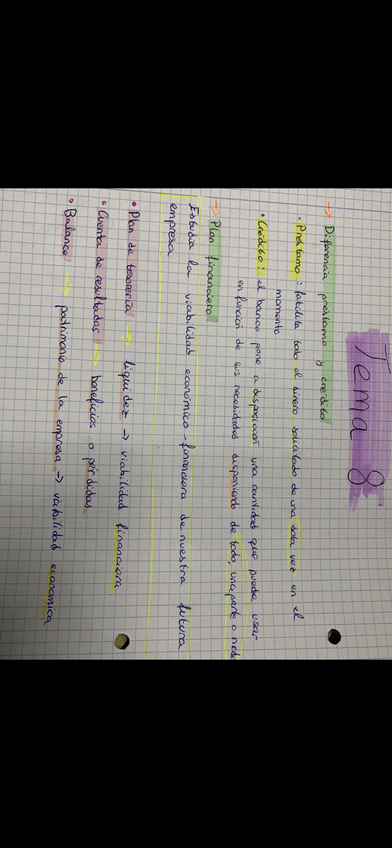 Tema 8
→ Diferencia préstamo y crédito
• Préstamo: facilita todo el dinero solicitado de una sola vez en el
momento
• Crédito: el banco pone a disposición una cantidad que puede usar
en función de sus necesidades disponiendo de todo, una parte o nada
→ Plan financiero
Estudia la viabilidad económico-financiera de nuestra futura
empresa
• Plan de tesorería → liquidez → viabilidad financiera
• Cuenta de resultados → beneficios o pérdidas
• Balance → patrimonio de la empresa → viabilidad económica